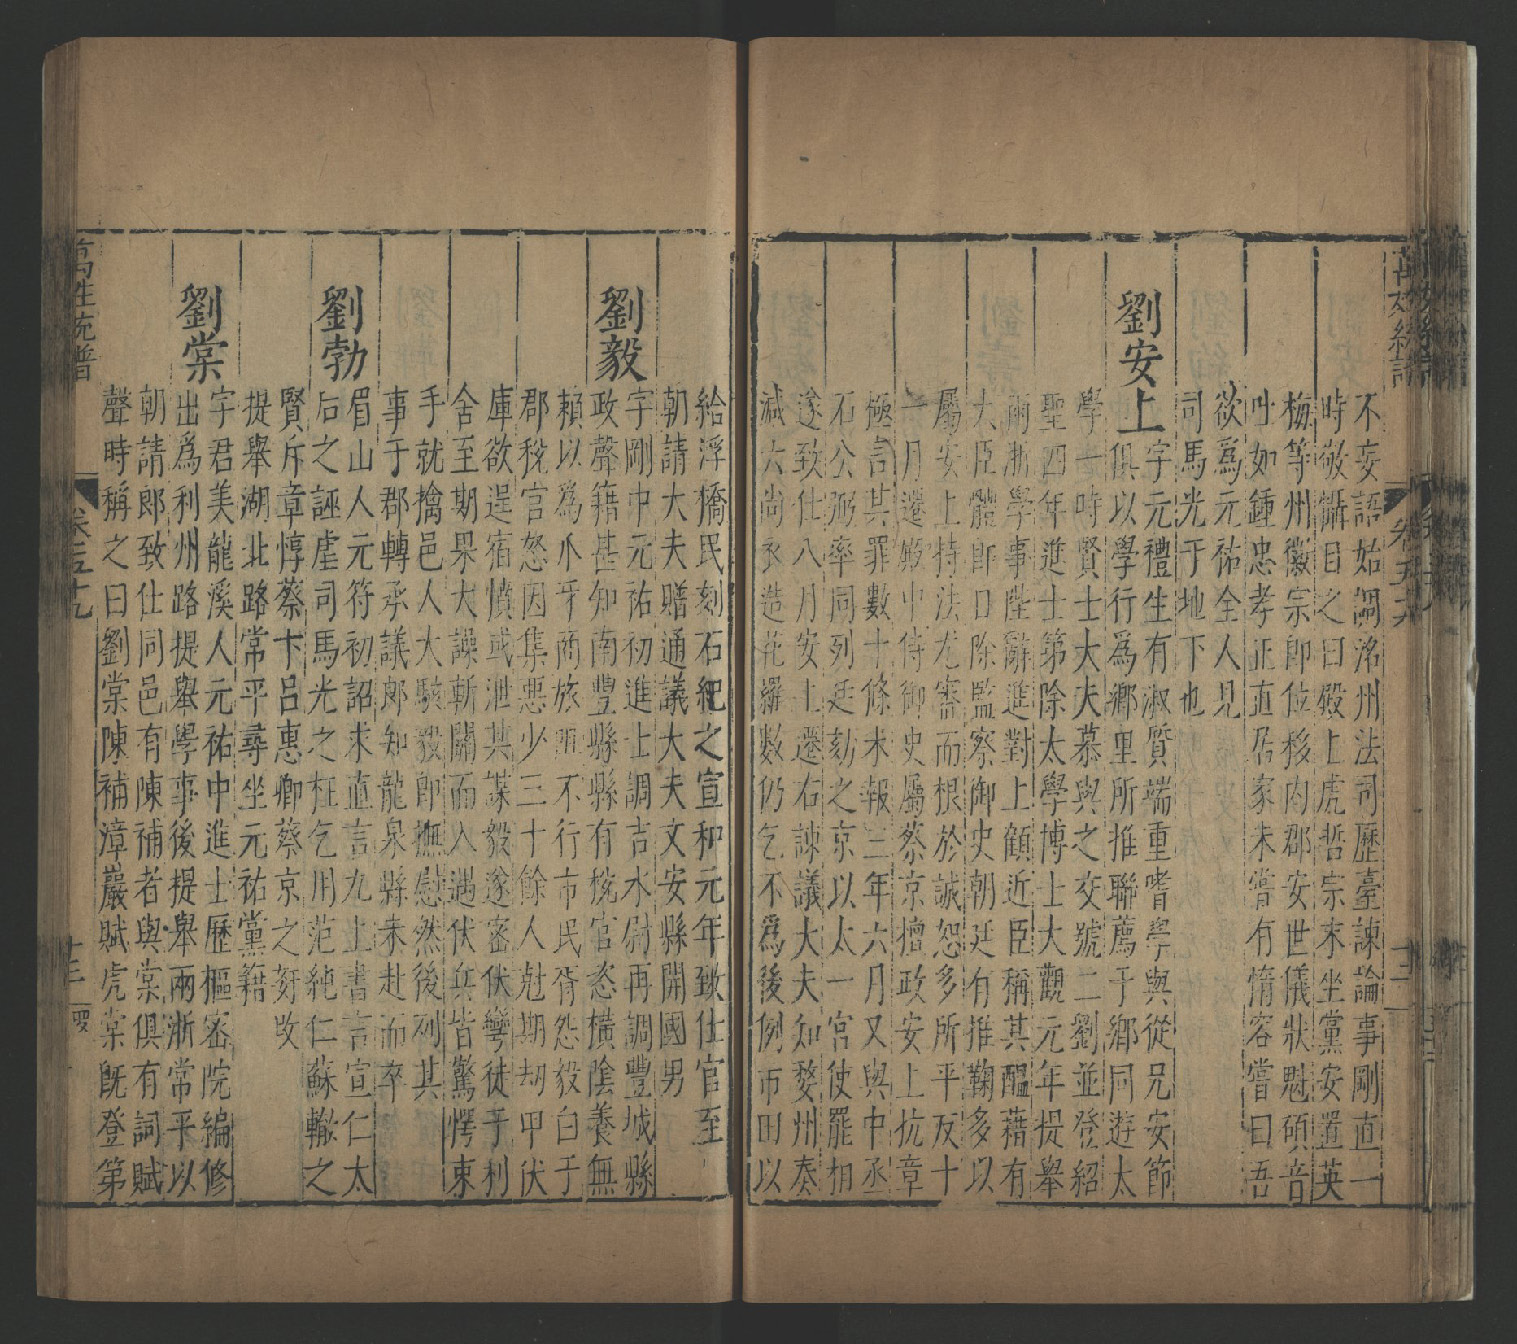 不妄語始調洺州法司歷臺諫論事剛直一
時敬懾目之曰殿上虎哲宗末坐黨安置英
梅等州徽宗即位移內郡安世儀狀魁碩音
吐如鍾忠孝正直居家未嘗有惰容嘗曰吾
欲爲元祐全人見
司馬光于地下也
劉安上
字元禮生有淑質端重嗜學與從兄安節
俱以學行爲鄉里所推聯薦于鄉同遊太
學一時賢士大夫慕與之交號二劉並登紹
聖四年進士第除太學博士大觀元年提舉
兩浙學事陛辭進對上顧近臣稱其醞藉有
大臣體即日除監察御史朝廷有推鞠多以
屬安上持法尤審而根於誠恕多所平反十
一月遷殿中侍御史屬蔡京擅政安上抗章
極言其罪數十條未報三年六月又與中丞
石公弼率同列廷劾之京以太一宮使罷相
遂致仕八月安上遷右諫議大夫知婺州奏
減大尚衣造花羅數仍乞不爲後例市田以
給浮橋民刻石紀之宣和元年致仕官至
朝請大夫贈通議大夫文安縣開國男
劉毅
字剛中元祐初進士調吉水尉再調豐城縣
政聲籍甚知南豐縣縣有挽官恣橫陰養無
賴以爲爪牙商旅㢠不行市民胥怨毅白于
郡稅官怒因集惡少三十餘人尅期刼甲伏
庫欲逞宿憤或泄其謀毅遂密伏彎徒于利
舍至期果大譟斬關而入遇伏兵皆驚愕束
手就擒邑人大駭毅即撫慰然後列其
事于郡轉承議郎知龍泉縣未赴而卒
劉勃
眉山人元符初詔求直言九上書言宣仁太
后之誣虛司馬光之枉乞用范純仁蘇轍之
賢斥章惇蔡卞呂惠卿蔡京之姦改
提舉湖北路常平尋坐元祐黨籍
劉棠
字君美龍溪人元祐中進士歷樞密院編修
出爲利州路提舉學事後提舉兩浙常平以
朝請郎致仕同邑有陳補者與棠俱有詞賦
聲時稱之曰劉棠陳補漳巖賦虎棠既登第
萬姓統譜
卷五十九
十三